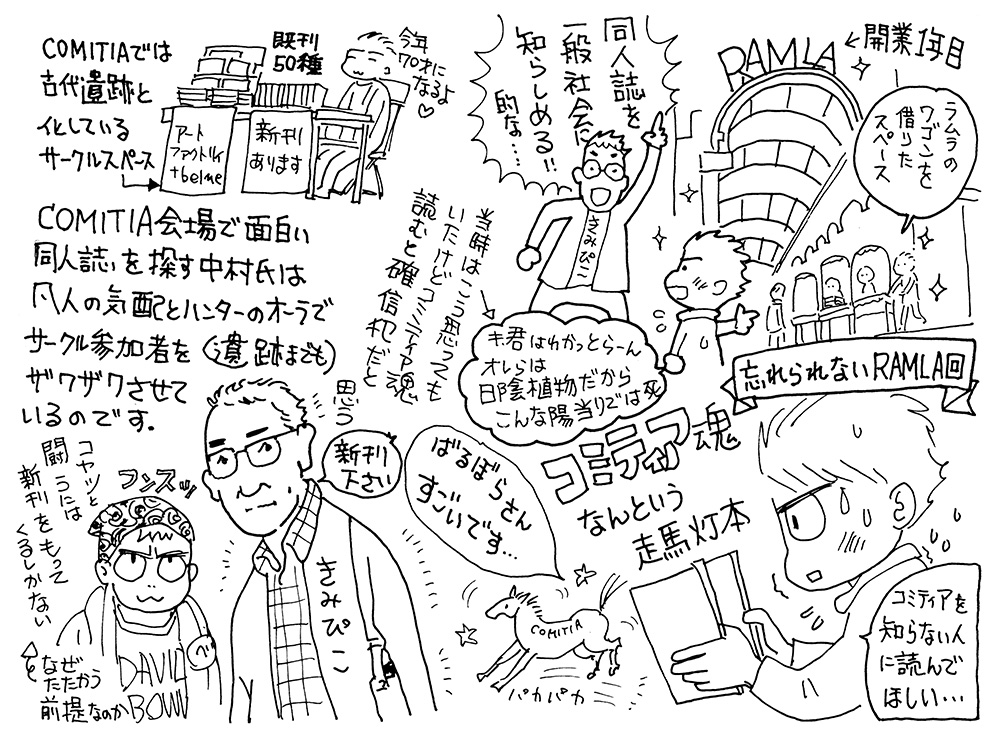 COMITIAでは
古代遺跡と
化している
サークルスペース
既刊
50種
今年
70才に
なるよ
アート
ファクトリィ
+belne
新刊
あります
同人誌を
一般社会に
知らしめる!!
的な…
きみぴこ
RAMLA
開業1年目
ラムラの
ワゴンを
借りた
スペース
忘れられないRAMLA回
COMITIA会場で面白い
同人誌を探す中村氏は
凡人の気配とハンターのオーラで
サークル参加者を(遺跡までも)
ザワザワさせて
いるのです.
当時はこう思っても
いたけどコミティア魂
読むと確信犯だと
思う
キ君はわかっとらーん
オレらは
日陰植物だから
こんな陽当りでは死
コミティア魂
なんという
走馬灯本
新刊
下さい
ばるぼらさん
すごいです…
きみぴこ
COMITIA
パカパカ
コヤツと
闘うには
新刊をもって
くるしかない
フンスッ
DAVID
BOWI
なぜ
たたかう
前提なのか
コミティアを
知らない人
に読んで
ほしい…